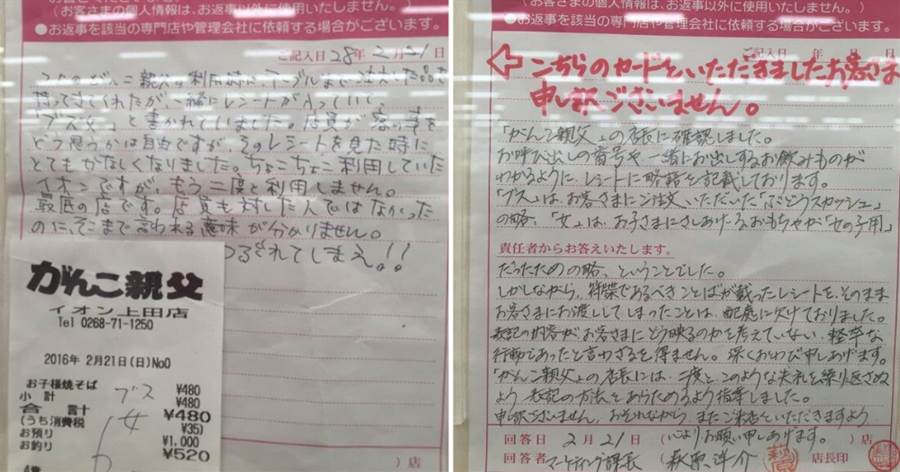 (お客さまの個人情報は、お返事以外に使用いたしません。
●お返事を該当の専門店や管理会社に依頼する場合がございます。
ご記入日 28年 2月 21日
持ってきてくれたが、一緒にレシートが入っていて、
「ブス女」と書かれていました。店員が客の事を
どう思うかは自由ですが、そのレシートを見た時に
とてもかなしくなりました。ちょこちょこ利用していた
イオンですが、もう二度と利用しません。
最低の店です。店員も対した人ではなかった
のに、そこまで言われる意味が分かりません。
つぶれてしまえ!!
がんこ親父
イオン上田店
Tel 0268-71-1250
2016年 2月21日(日)No0
お子様焼そば ¥480
小 計 ¥480
合 計 ¥480
(うち消費税 ¥35)
お預り ¥1,000
お釣り ¥520
ブス
女
)店
(お客さまの個人情報は、お返事以外に使用いたしません。
●お返事を該当の専門店や管理会社に依頼する場合がございます。
ご記入日 年 月 日
こちらのカードをいただきましたお客さま
申し訳ございません。
「がんこ親父」の店長に確認しました。
お呼び出しの番号や一緒にお出しするお飲みものが
わかるように、レシートに略語を記載しております。
「ブス」は、お客さまにご注文いただいた「ぶどうスカッシュ」
の略、「女」は、お子さまにさしあげるおもちゃが「女の子用」
責任者からお答えいたします。
だったための略、ということでした。
しかしながら、符牒であるべきことばが載ったレシートを、そのまま
お客さまにお渡ししてしまったことは、配慮に欠けておりました。
表記の内容がお客さまにどう映るのかを考えていない、軽率な
行動であったと言わざるを得ません。深くおわび申しあげます。
「がんこ親父」の店長には、二度とこのような失礼を繰り返さぬ
よう、表記の方法をあらためるよう指導しました。
申し訳ございません。おそれながら、またご来店をいただきますよう
回答日 2月 21日 (心よりお願い申しあげます。)店
回答者 マーケティング課長 萩原洋介 店長印